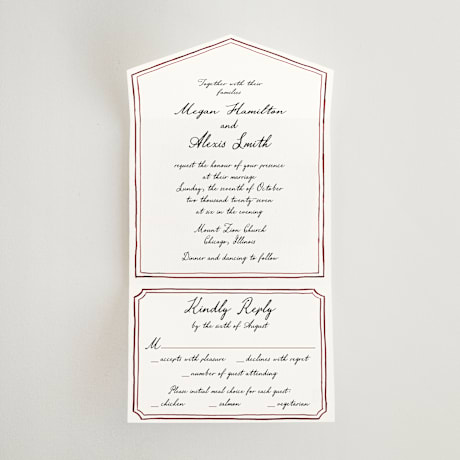 Together with their
families
Megan Hamilton
and
Alexis Smith
request the honour of your presence
at their marriage
Sunday, the seventh of October
two thousand twenty-seven
at six in the evening
Mount Zion Church
Chicago, Illinois
Dinner and dancing to follow
Kindly Reply
by the sixth of August
M
accepts with pleasure declines with regret
number of guest attending
Please initial meal choice for each guest:
chicken salmon vegetarian